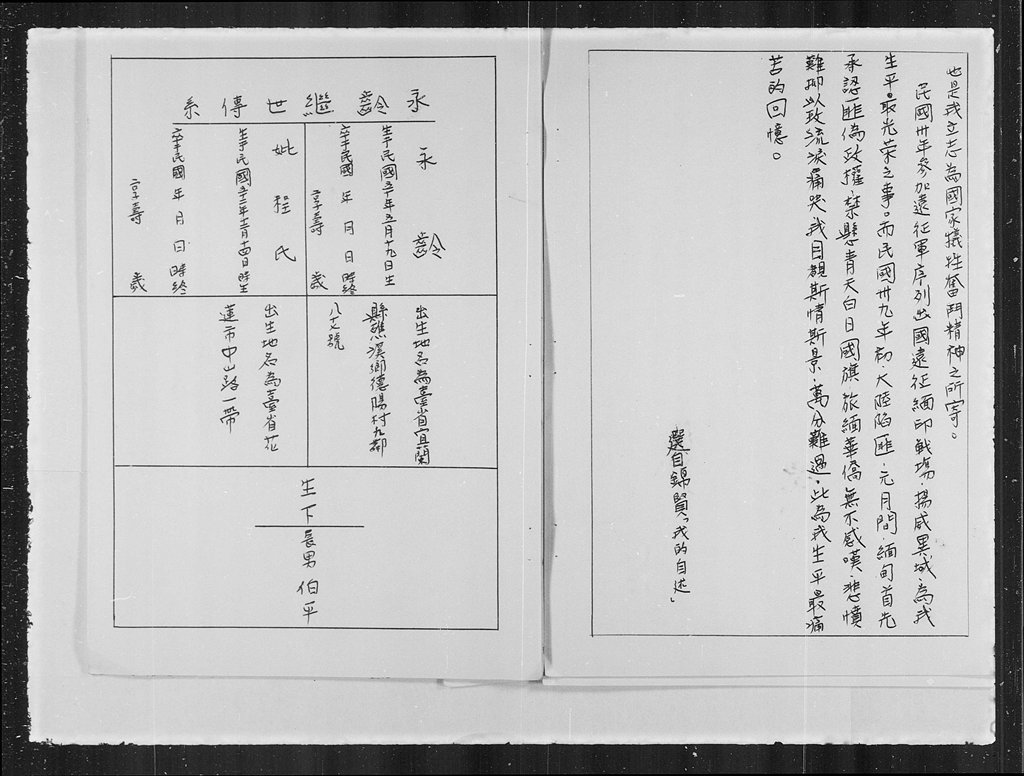 也是我立志為國家犧牲奮鬥精神之所寄。
民國卅年參加遠征軍序列出國遠征緬印戰場，揚威異域，為我
生平最光荣之事。而民國卅九年初，大陸陷匪，元月間，緬甸首先
承認匪偽政權，禁懸青天白日國旗，旅緬華僑無不感嘆，悲憤
難抑以致流淚痛哭，我目覩斯情斯景，萬分難過，此為我生平最痛
苦的回憶。
選自錦賢「我的自述」
永齡繼世傳系
永齡
生于民國五十年五月十九日生
卒于民國 年 月 日 時終
享壽 歲
妣程氏
生于民國五十二年十二月十四日時生
卒于民國 年 月 日 時終
享壽 歲
出生地名為臺省宜蘭
縣礁溪鄉德陽村九鄰
八十七號
出生地名為臺省花
蓮市中山路一帶
生下
長男 伯平